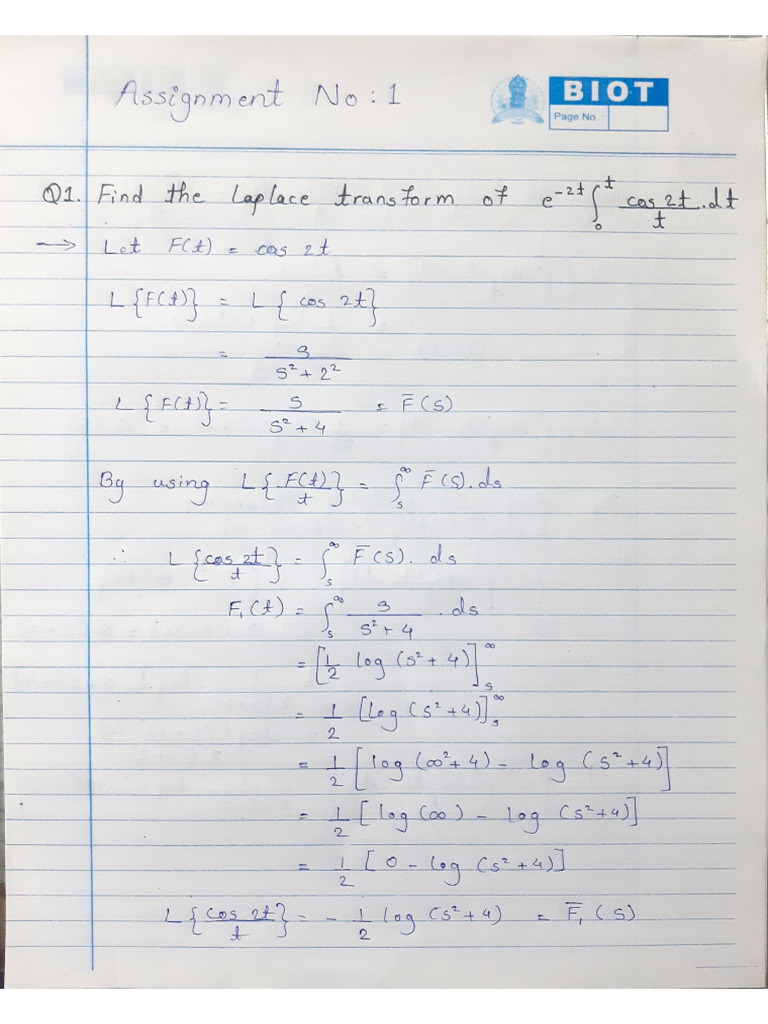 Assignment No : 1
BIOT
Page No. :
Q1. Find the Laplace transform of e^{-2t} ∫_0^t cos 2t/t . dt
→ Let F(t) = cos 2t
L{F(t)} = L{cos 2t}
= s/(s² + 2²)
L{F(t)} = s/(s² + 4) = F̄(s)
By using L{F(t)/t} = ∫_s^∞ F̄(s).ds
∴ L{cos 2t/t} = ∫_s^∞ F̄(s). ds
F₁(t) = ∫_s^∞ s/(s² + 4) . ds
= [1/2 log (s² + 4)]_s^∞
= 1/2 [log (s² + 4)]_s^∞
= 1/2 [log (∞² + 4) - log (s² + 4)]
= 1/2 [log (∞) - log (s² + 4)]
= 1/2 [0 - log (s² + 4)]
L{cos 2t/t} = - 1/2 log (s² + 4) = F̄₁(s)